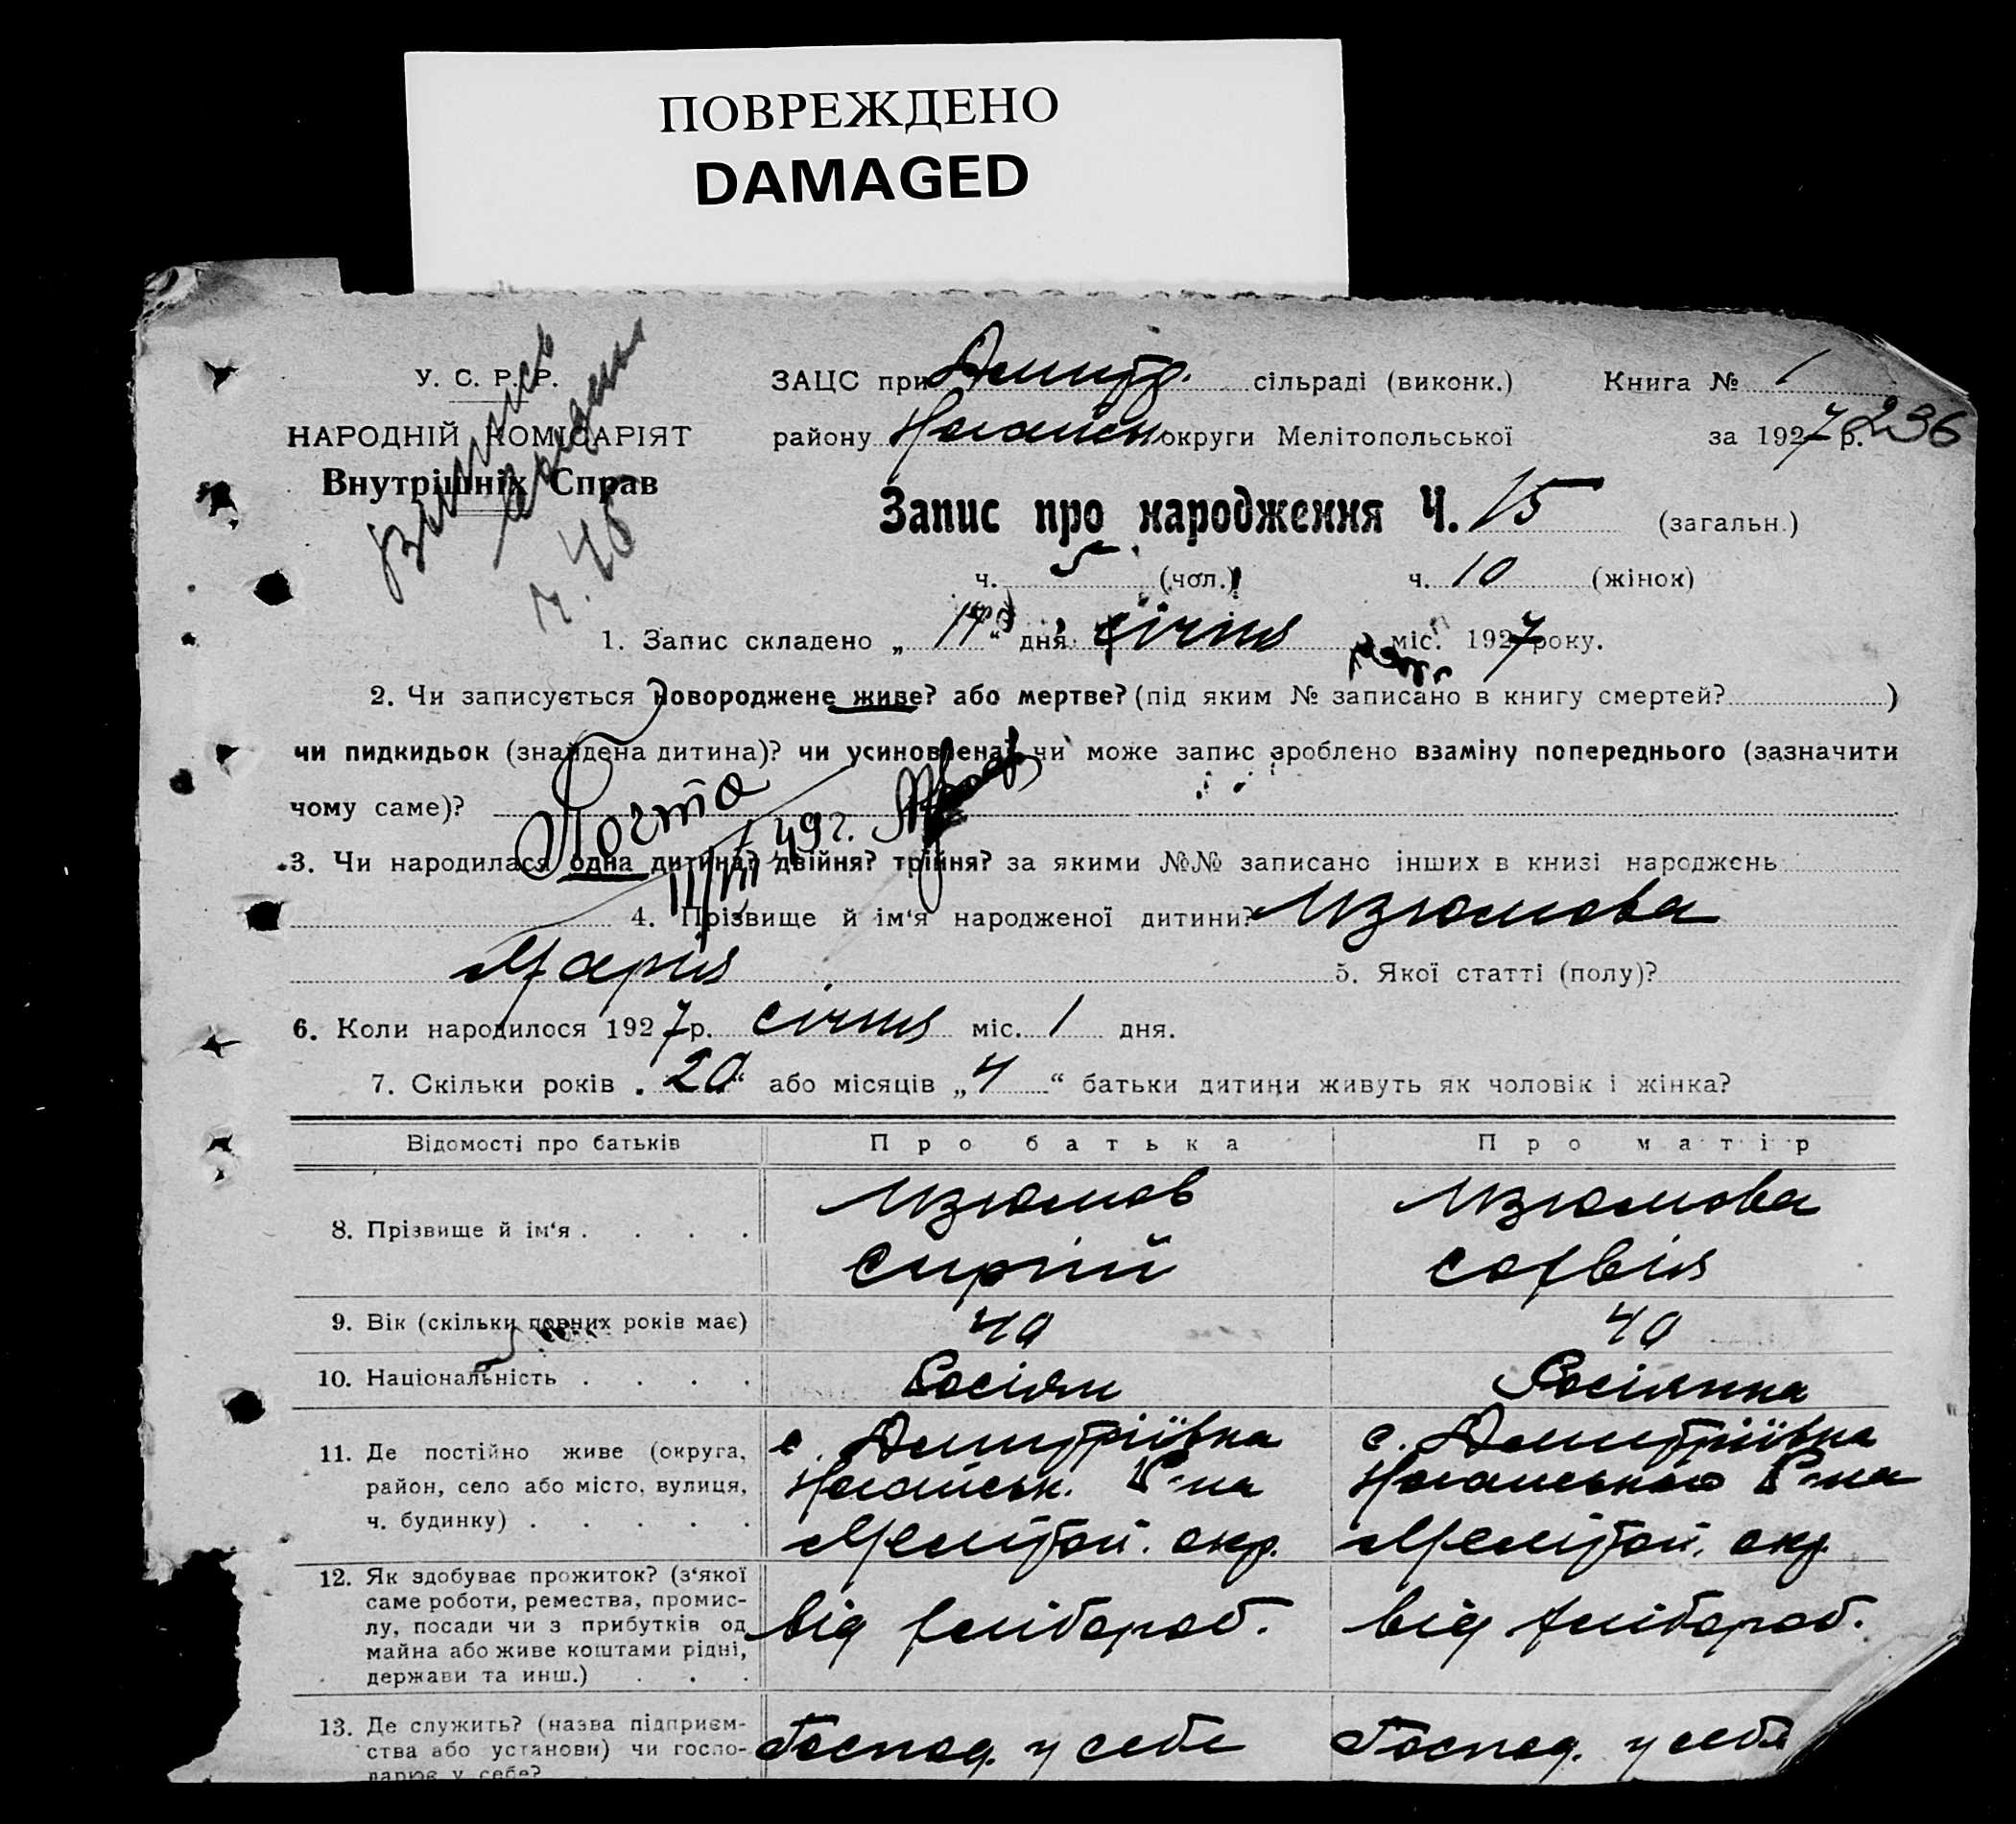 ПОВРЕЖДЕНО
DAMAGED
У. С. Р. Р.
НАРОДНІЙ КОМІСАРІЯТ
Внутрішніх Справ
ЗАЦС при Дмитр. сільраді (виконк.) Книга № 1
району Ногайськ округи Мелітопольської за 1927 р. 236
Запис про народження Ч. 15 (загальн.)
ч. 5 (чол.) ч. 10 (жінок)
1. Запис складено „17“ дня січня міс. 1927 року.
2. Чи записується новороджене живе? або мертве? (під яким № записано в книгу смертей? )
чи пидкидьок (знайдена дитина)? чи усиновлена? чи може запис зроблено взаміну попереднього (зазначити
чому саме)?
Почта
49 г.
3. Чи народилася одна дитина? двійня? трійня? за якими №№ записано інших в книзі народжень
4. Прізвище й ім‘я народженої дитини? Изюмова
Марія 5. Якої статті (полу)?
6. Коли народилося 1927 р. січня міс. 1 дня.
7. Скільки років „20“ або місяців „4“ батьки дитини живуть як чоловік і жінка?
Відомості про батьків Про батька Про матір
8. Прізвище й ім‘я . . . . Изюмов Изюмова
Сиргій Софвія
9. Вік (скільки повних років має) 40 40
10. Національність . . . . Росіян Росіянка
11. Де постійно живе (округа, с. Дмитріївка с. Дмитріївка
район, село або місто, вулиця, Ногайськ. Р-на Ногайського Р-на
ч. будинку) . . . . . Мелітоп. окр. Мелітоп. окр.
12. Як здобуває прожиток? (з‘якої
саме роботи, ремества, промис-
лу, посади чи з прибутків од від хлібороб. від хлібороб.
майна або живе коштами рідні,
держави та инш.) . . .
13. Де служить? (назва підприєм-
ства або установи) чи госпо- Господ. у себе Господ. у себе
дарює у себе?